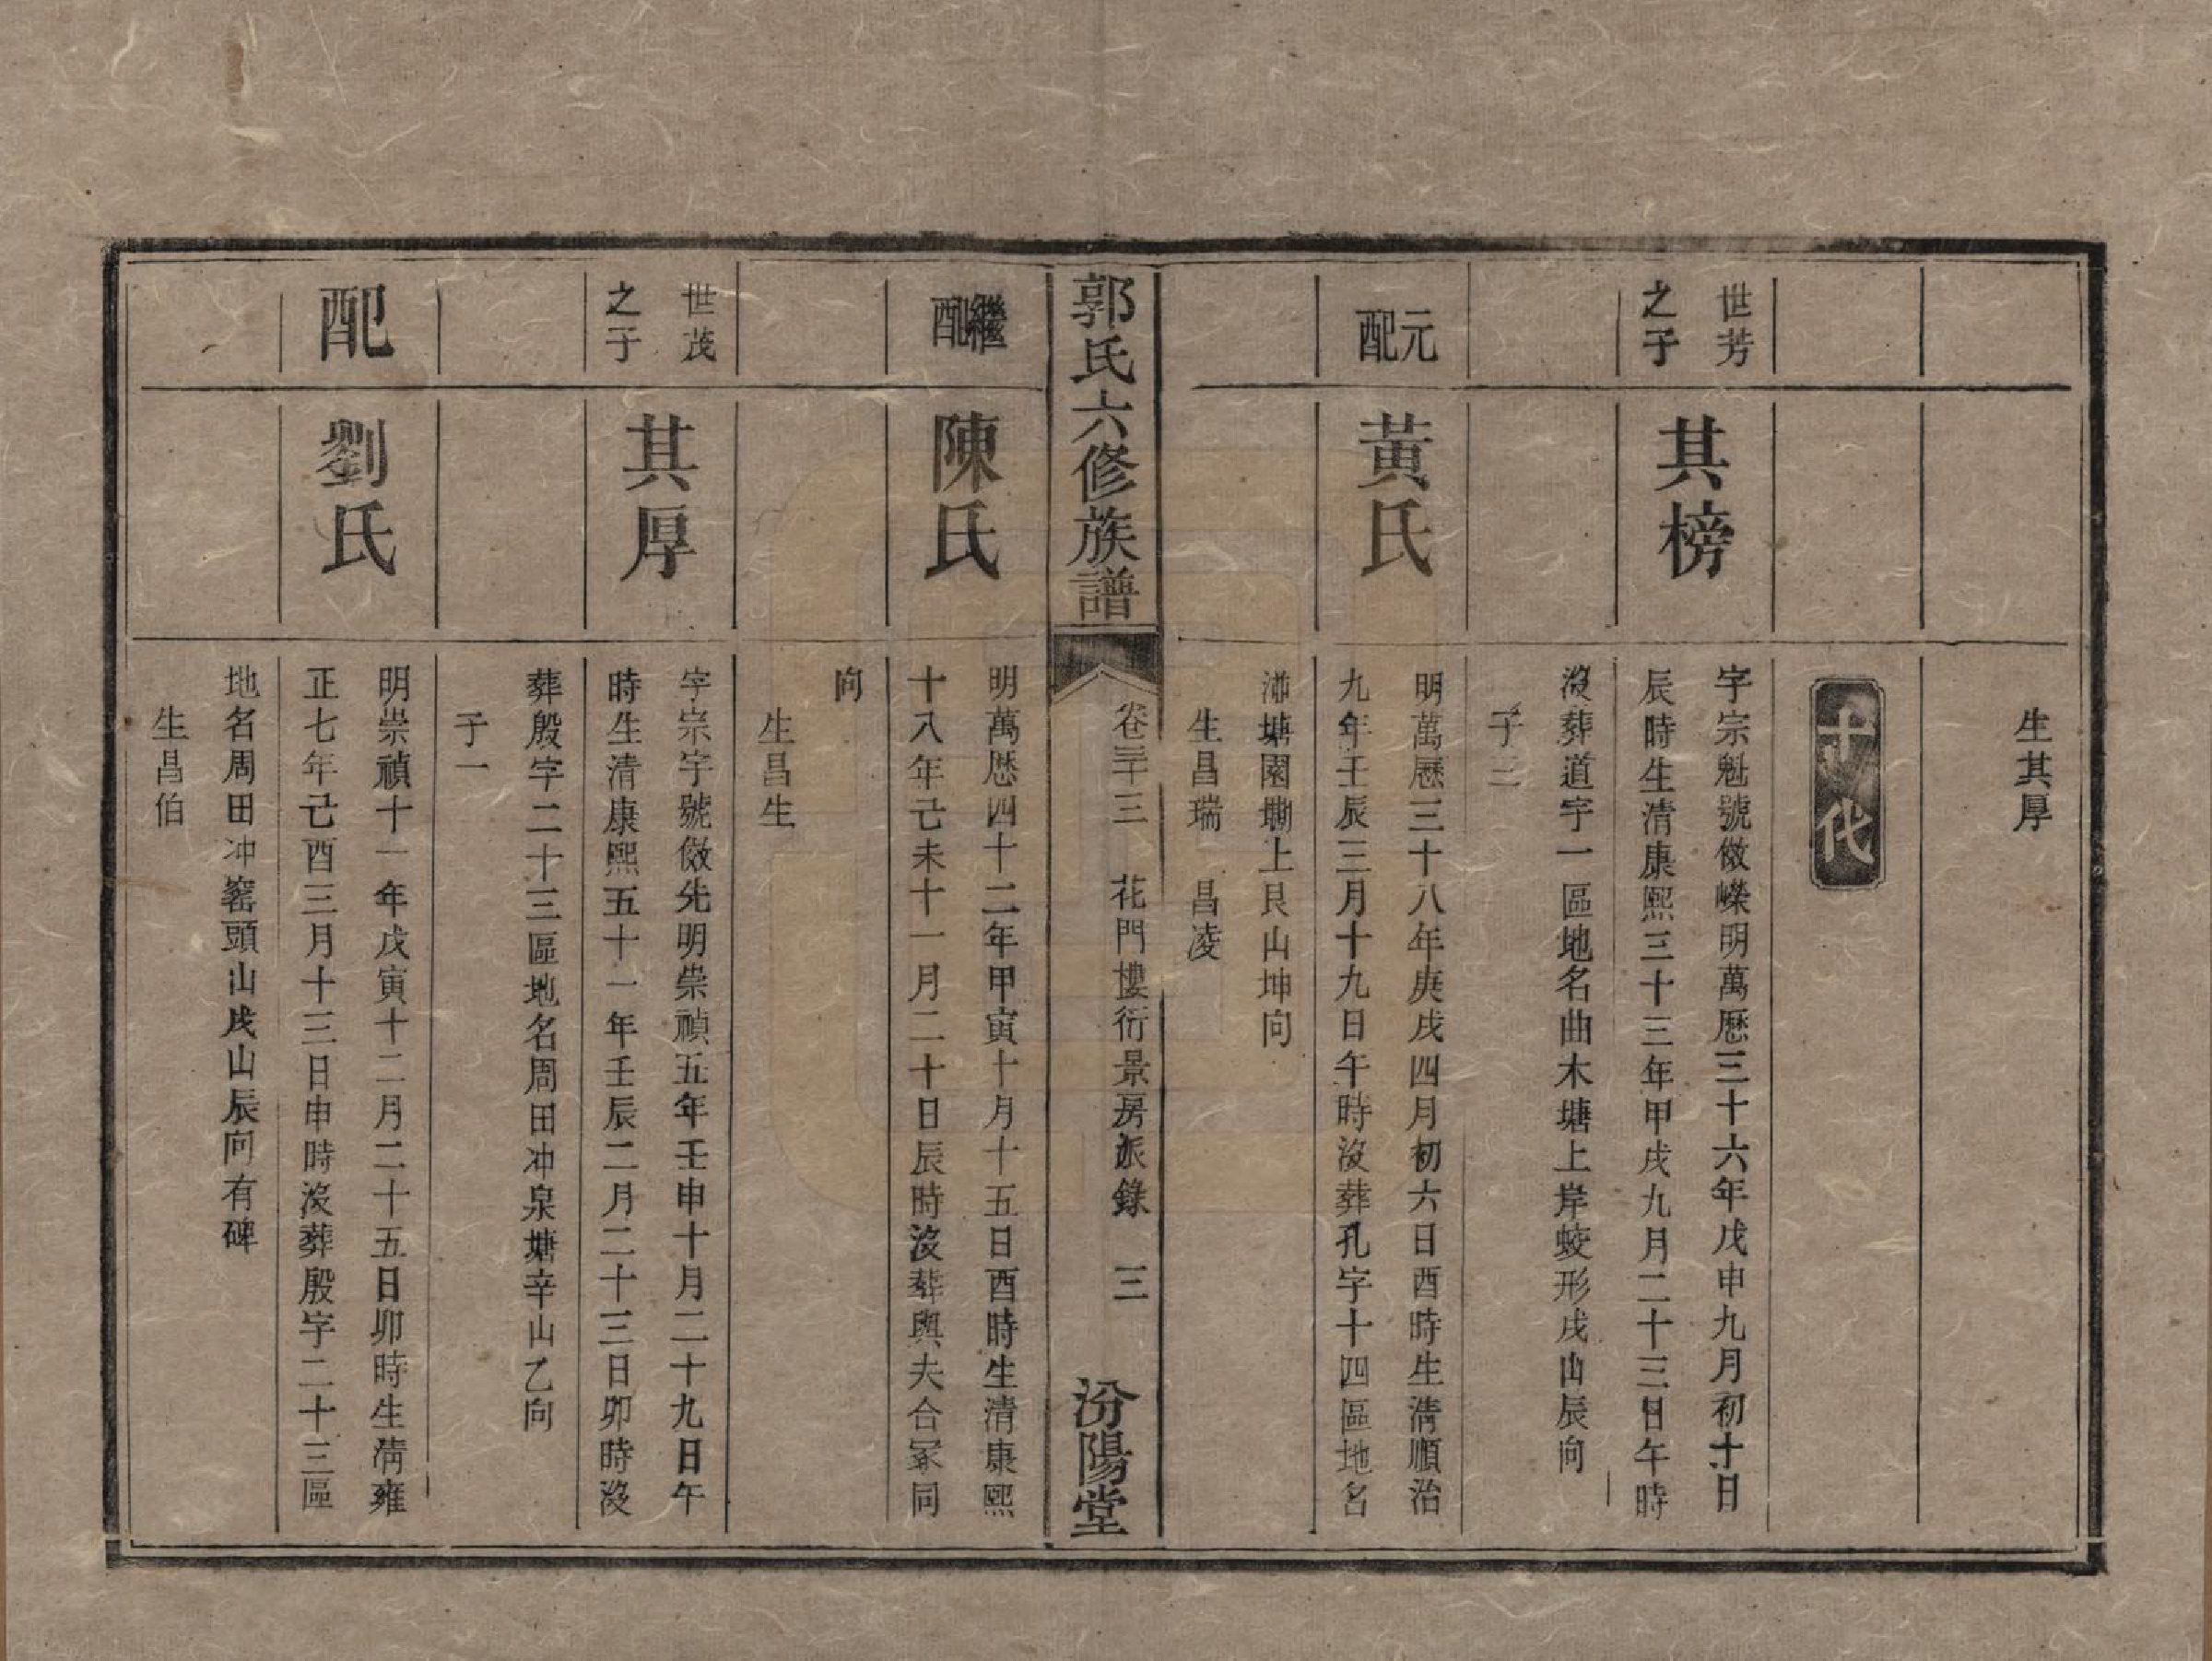 生其厚
十代
世芳
之子
其榜
字宗魁號儆嶸明萬歷三十六年戊申九月初十日
辰時生清康熙三十三年甲戌九月二十三日午時
沒葬道字一區地名曲木塘上岸蛟形戌山辰向
子三
元配
黃氏
明萬歷三十八年庚戌四月初六日酉時生清順治
九年壬辰三月十九日午時沒葬孔字十四區地名
塘園墈上艮山坤向
生昌瑞 昌凌
郭氏六修族譜
卷三十三 花門樓衍景房派錄 三
汾陽堂
繼配
陳氏
明萬歷四十二年甲寅十月十五日酉時生清康熙
十八年己未十一月二十日辰時沒葬與夫合冢同
向
生昌生
世茂
之子
其厚
字宗宇號儆先明崇禎五年壬申十月二十九日午
時生清康熙五十一年壬辰二月二十三日卯時沒
葬殷字二十三區地名周田冲泉塘辛山乙向
子一
配
劉氏
明崇禎十一年戊寅十二月二十五日卯時生清雍
正七年己酉三月十三日申時沒葬殷字二十三區
地名周田冲窰頭山戌山辰向有碑
生昌伯